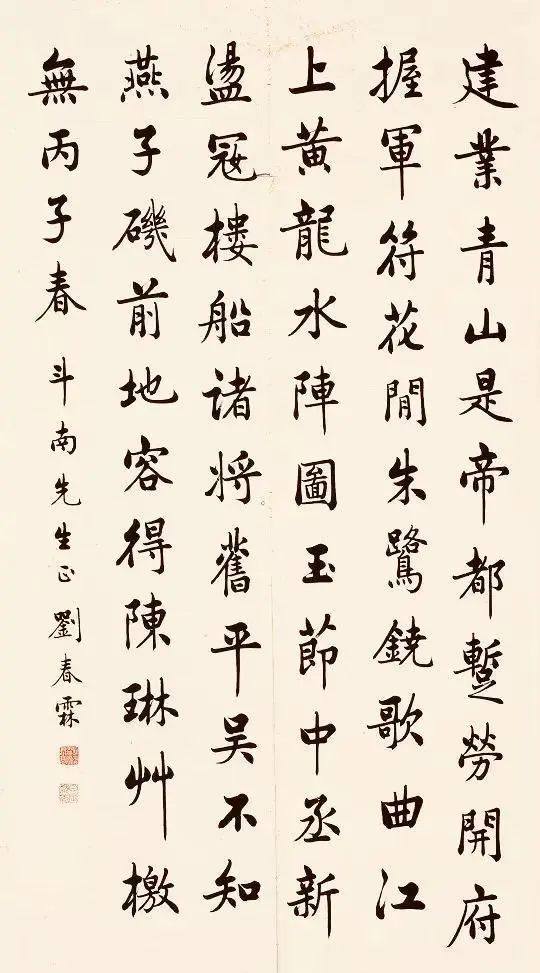 建業青山是帝都蹔勞開府
握軍符花間朱鷺鐃歌曲江
上黃龍水陣圖玉節中丞新
盪冦樓船諸將舊平吴不知
燕子磯前地容得陳琳艸檄
無丙子春
斗南先生正 劉春霖